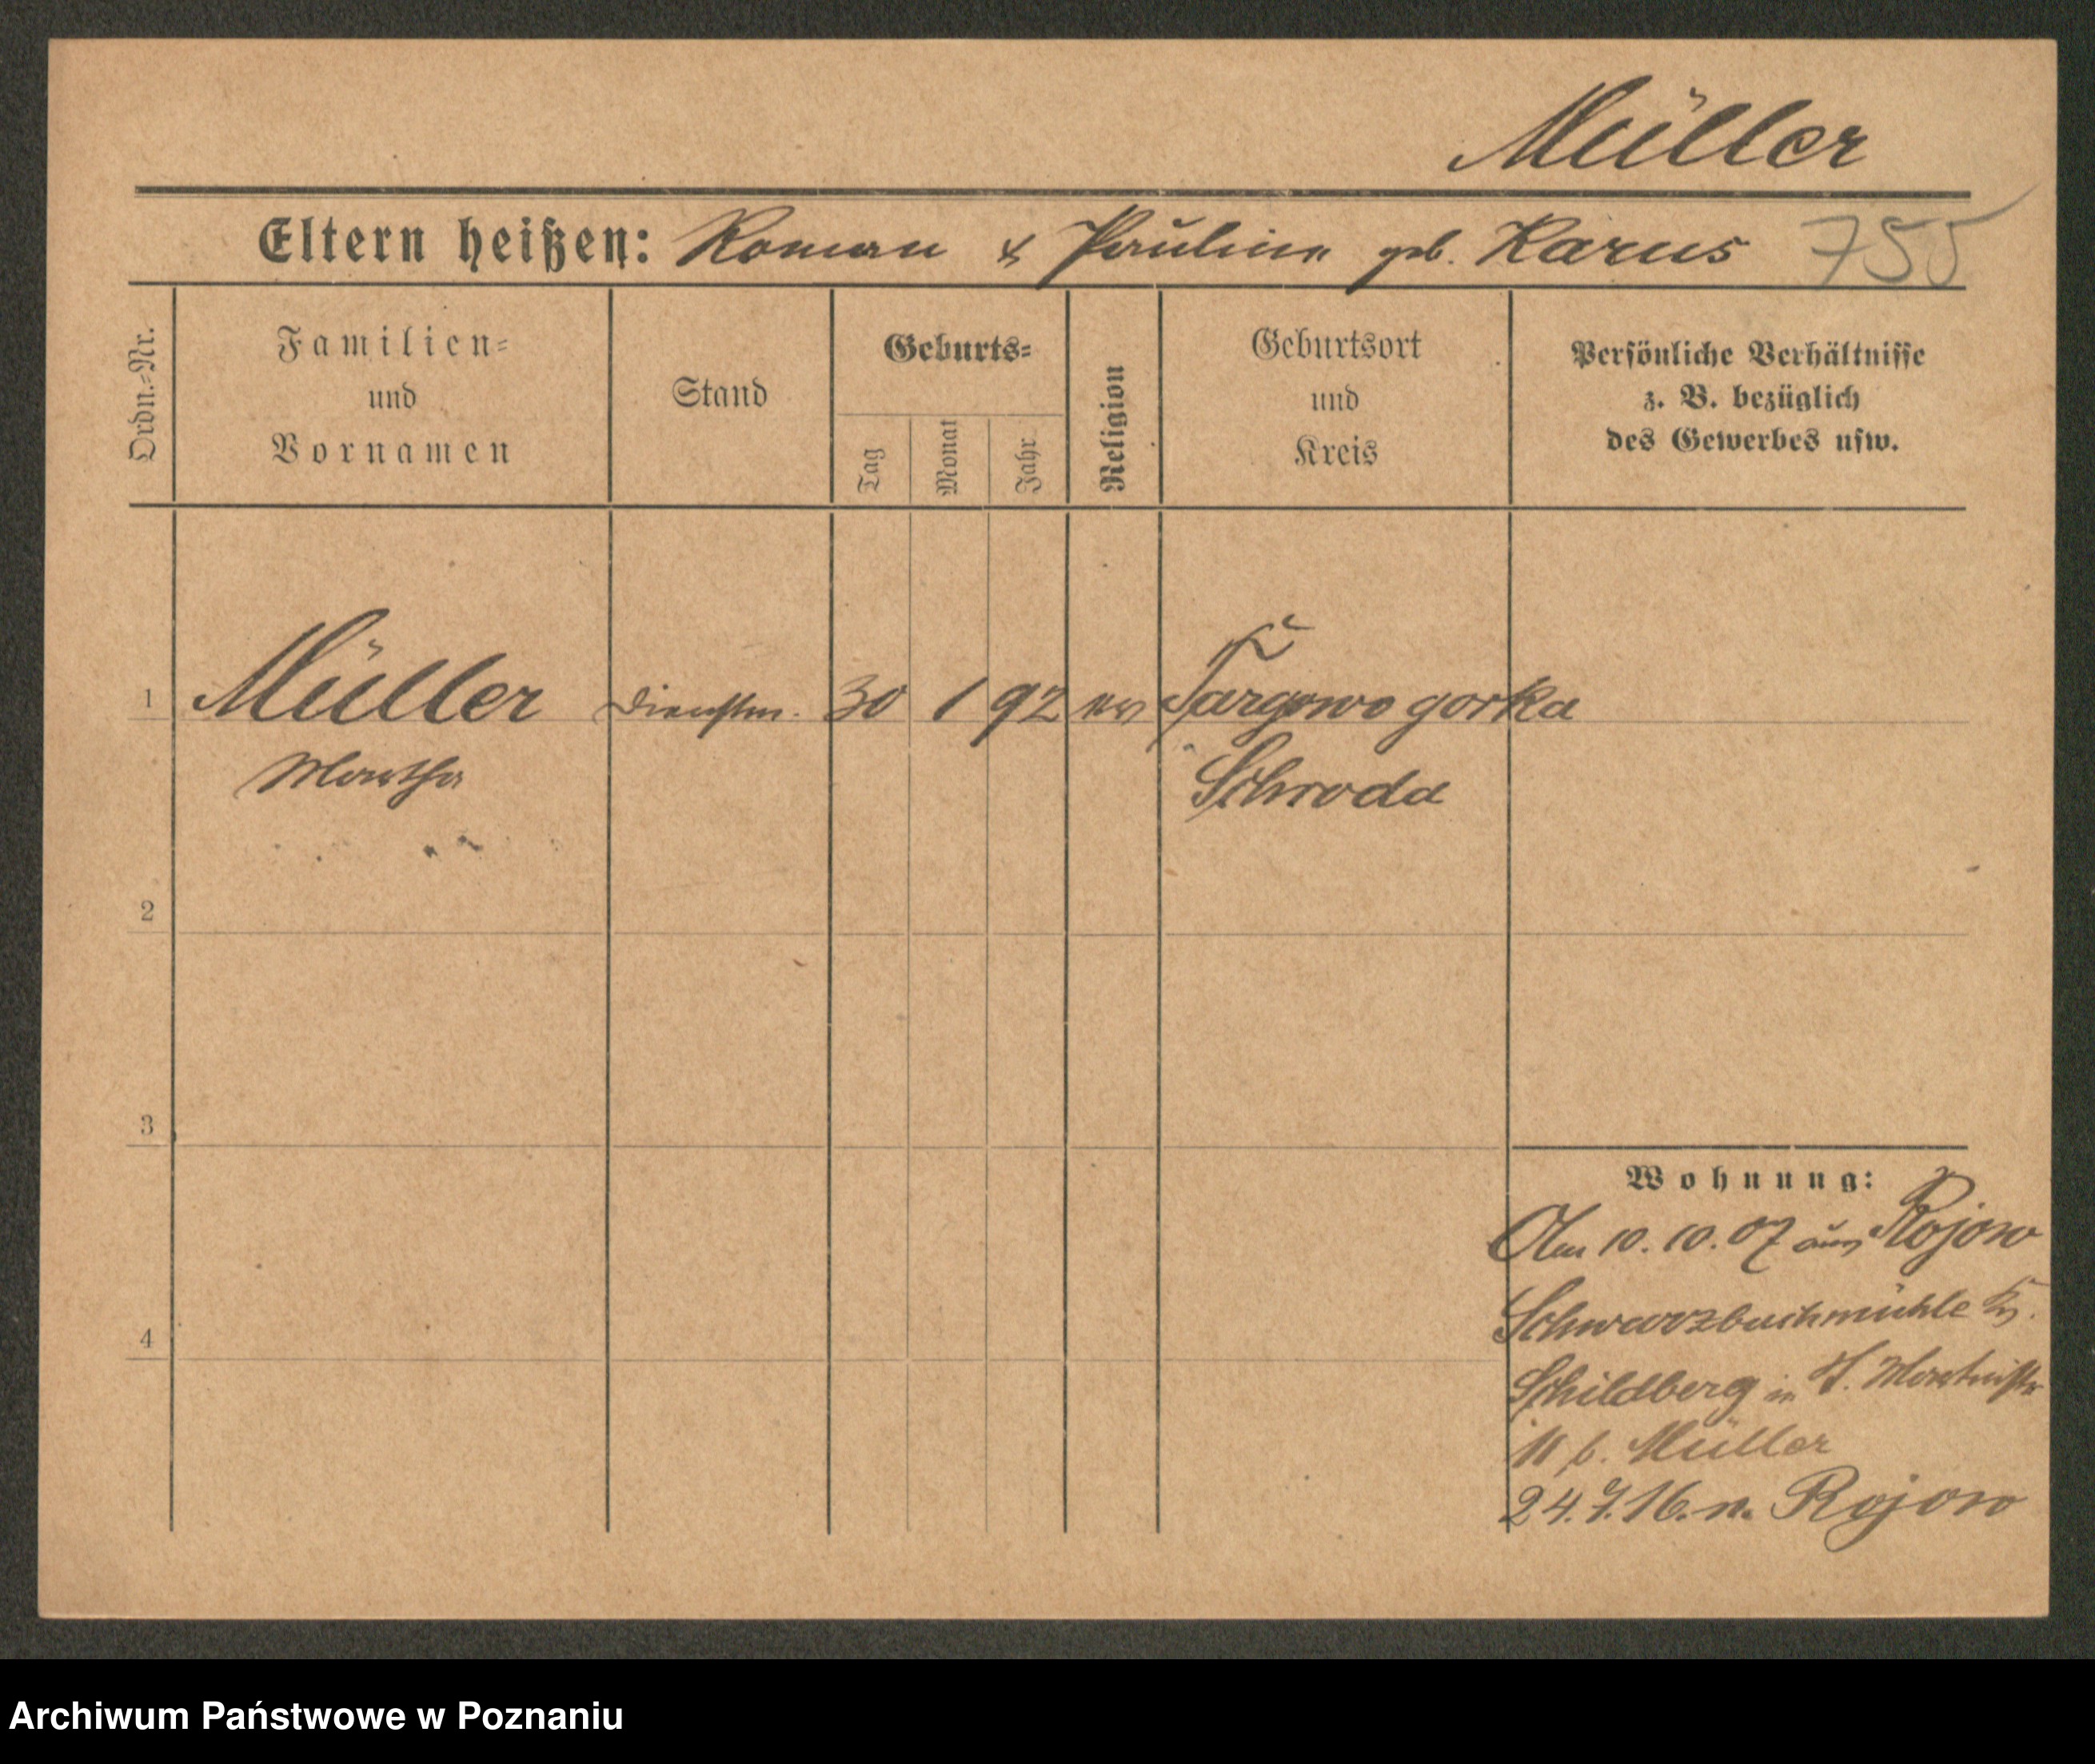 Müller
Eltern heißen: Roman & Pauline geb. Karus 755
Ordn.-Nr.
Familien-
und
Vornamen
Stand
Geburts-
Tag
Monat
Jahr
Religion
Geburtsort
und
Kreis
Persönliche Verhältnisse
z. B. bezüglich
des Gewerbes usw.
1 Müller Dienstm. 30 1 92 ev Targowo gorka
Martha Schroda
2
3
4
Wohnung:
Am 10.10.07 aus Rojow
Schwarzbachmühle Kr.
Schildberg in
11 b. Müller
24.7.16. n. Rojow
Archiwum Państwowe w Poznaniu